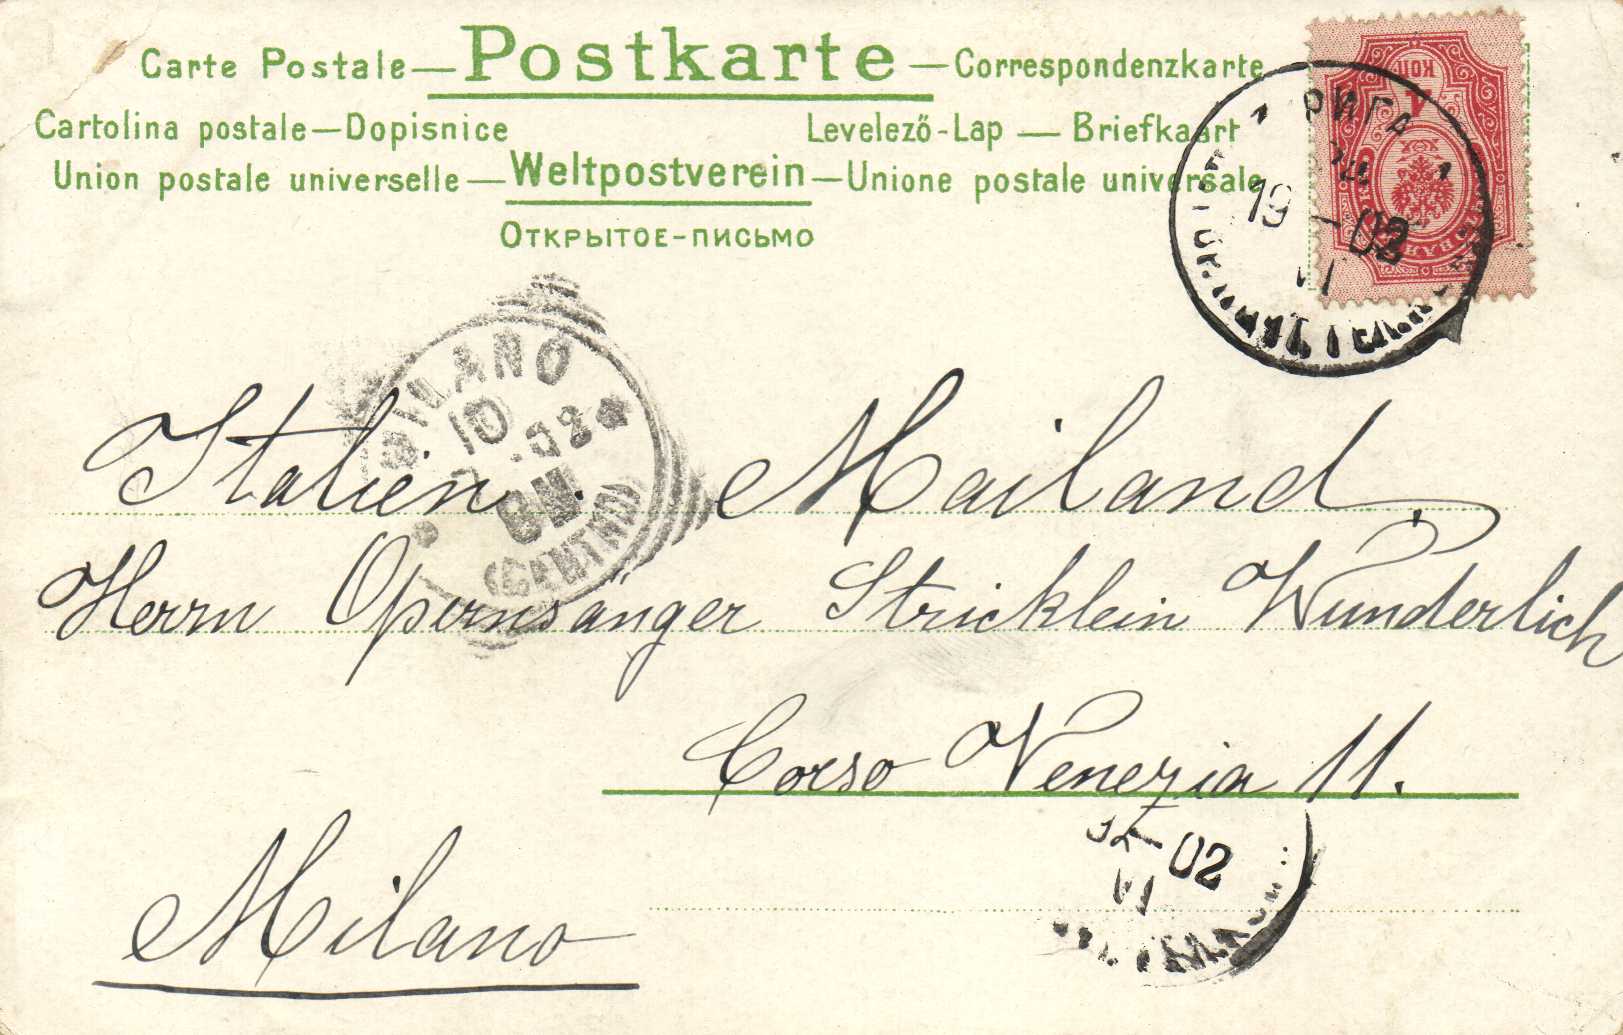 Carte Postale — Postkarte — Correspondenzkarte
Cartolina postale — Dopisnice Levelező-Lap — Briefkaart
Union postale universelle — Weltpostverein — Unione postale universale
Открытое-письмо
4
КОП
РИГА
24
19 – 02
VI
MILANO
10
02
8M
(CENTRO)
Italien. Mailand.
Herrn Opernsänger Stricklein Wunderlich
Corso Venezia 11.
02
VI
Milano